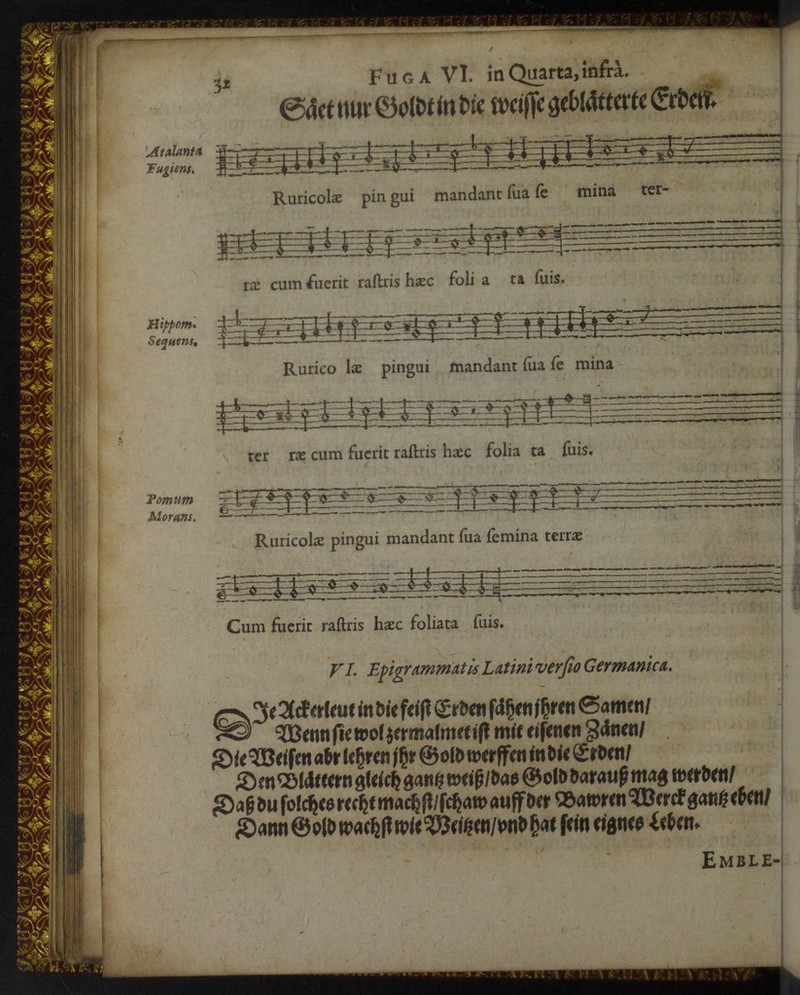 32
FUGA VI. in Quarta, infrà.
Säet nur Goldt in die weisse geblätterte Erden.
Atalanta
Fugiens.
Ruricolæ pin gui mandant ſua ſe mina ter-
ræ cum fuerit raſtris hæc foli a ta ſuis.
Hippom.
Sequens,
Rurico læ pingui mandant ſua ſe mina
ter ræ cum fuerit raſtris hæc folia ta ſuis.
Pomum
Morans.
Ruricolæ pingui mandant ſua ſemina terræ
Cum fuerit raſtris hæc foliata ſuis.
VI. Epigrammatis Latini verſio Germanica.
DJe Ackerleut in die feiſt Erden ſähen jhren Samen/
Wenn ſie wol zermalmet iſt mit eiſenen Zänen/
Die Weiſen abr lehren jhr Gold werffen in die Erden/
Den Blättern gleich gantz weiß/das Gold darauß mag werden/
Daß du ſolches recht machſt/ſchaw auff der Bawren Werck gantz eben/
Dann Gold wachſt wie Weitzen/vnd hat ſein eignes Leben.
EMBLE-